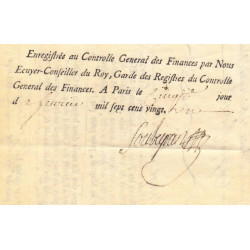 Enregistrée au Controlle General des Finances par Nous
Ecuyer-Conseiller du Roy, Garde des Registres du Controlle
General des Finances. A Paris le jour
d mil sept cens vingt